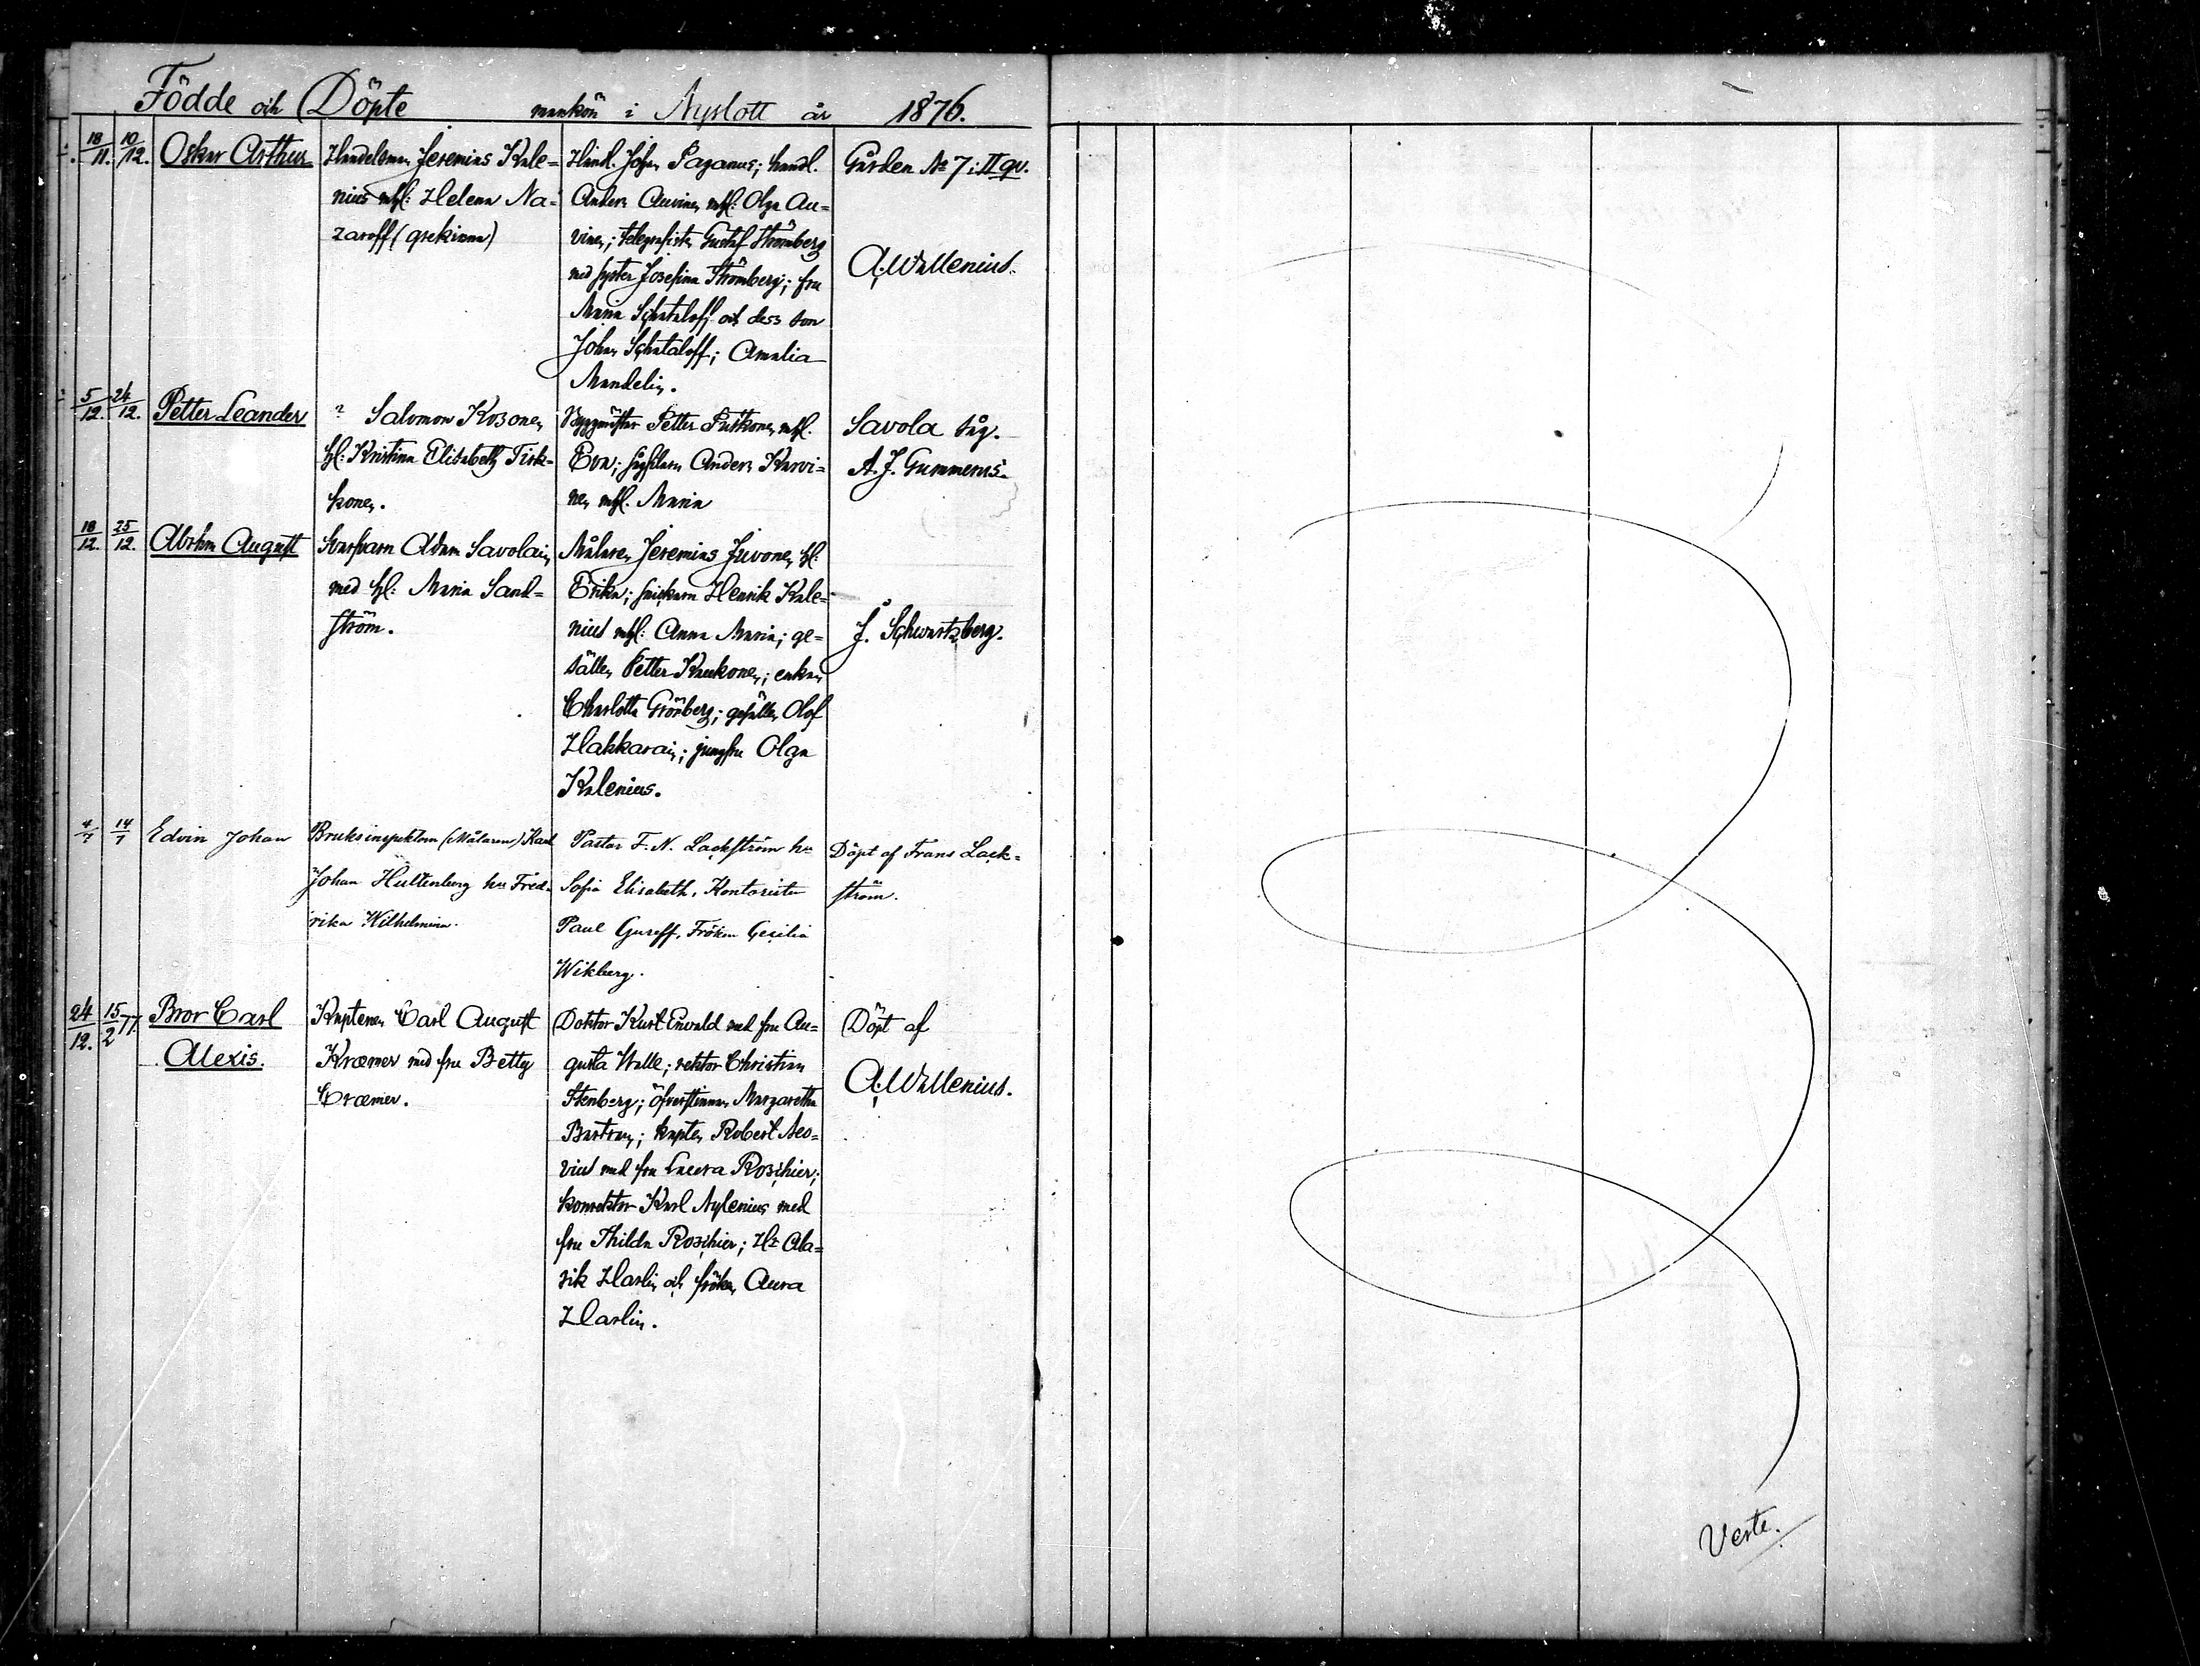 Födde och Döpte mankön i Nyslott år 1876.
18/11. 10/12. Oskar Arthur
Handelsman Jeremias Kale=
nius mhl: Helena Na=
zaroff (grekinna)
Handl. Johan Paganus; handl.
Anders Auvinen mhl: Olga Au=
vinen; telegrafisten Gustaf Strömberg
med syster Josefina Strömberg; fru
Maria Schataloff och dess son
Johan Schataloff; Amalia
Mandelin.
Gården № 7 i II qv.
A. Wallenius.
5/12. 24/12. Petter Leander
? Salomon Kosonen
hl: Kristina Elisabeth Tisk=
konen.
Byggmästar Petter mhl.
Eva; Anders Karvi=
nen mhl. Maria
Savola såg.
A. J. Gummerus.
18/12. 25/12. Abrhm August
Svarfvarn Adam Savolain
med hl: Maria Sand=
ström.
Målaren Jeremias Juvonen hl:
Erika; snickarn Henrik Kale=
nius mhl: Anna Maria; ge=
sällen Petter Kaukonen; enkan
Charlotta Grönberg; gesällen Olof
Hakkarain; jungfru Olga
Kalenius.
J. Schwartzberg.
4/7 14/7 Edvin Johan
Bruksinspektorn (Målaren) Karl
Johan Hultenberg hu Fred=
rika Wilhelmina.
Pastor F. N. Lackström hu
Sofia Elisabeth, Kontoristen
Paul Gureff, Fröken Cecilia
Wikberg.
Döpt af Frans Lack=
ström.
24/12. 15/2 77. Bror Carl
Alexis.
Kaptenen Carl August
Kræmer med fru Betty
Cræmer.
Doktor Kurt Enwald med fru Au=
gusta Walle; rektor Christian
Stenberg; öfverstinnan Margaretha
Bartram; kapten Robert Neo=
vius med fru Laura Roschier;
konrektor Karl Nylenius med
fru Thilda Roschier; Hr Ala=
rik Harlin och fröken Aura
Harlin.
Döpt af
A. Wallenius.
Verte.